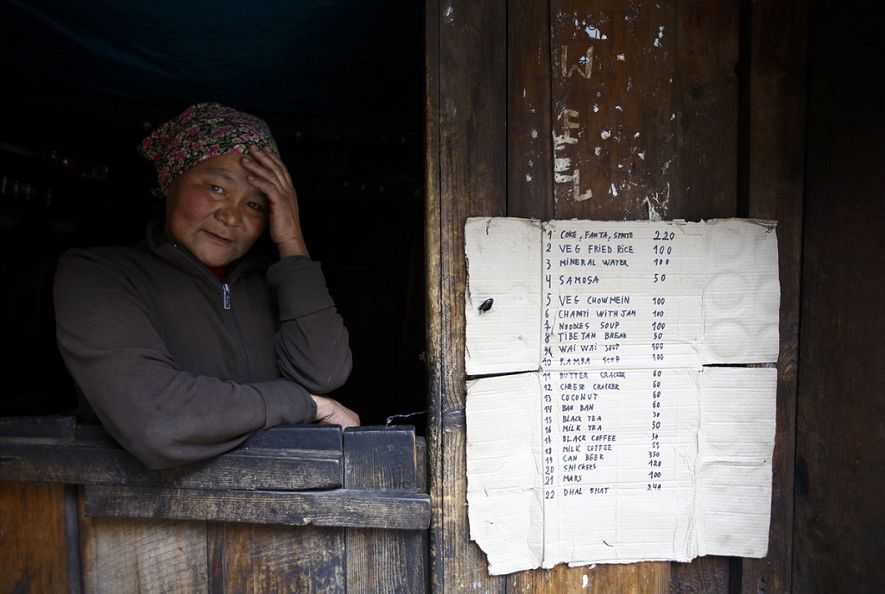 WEL
1 COKE, FANTA, SPRITE 220
2 VEG FRIED RICE 100
3 MINERAL WATER 100
4 SAMOSA 50
5 VEG CHOWMEIN 100
6 CHAPATI WITH JAM 100
7 NOODLES SOUP 100
8 TIBETAN BREAD 50
WAI WAI SOUP 100
10 SOUP 100
11 BUTTER CRACKER 60
12 CHEESE CRACKER 60
13 COCONUT 60
14 BAN BAN 60
15 BLACK TEA 30
16 MILK TEA 50
BLACK COFFEE 50
18 MILK COFFEE
19 CAN BEER 350
20 SNICKERS 120
21 MARS 100
22 DHAL BHAT 240